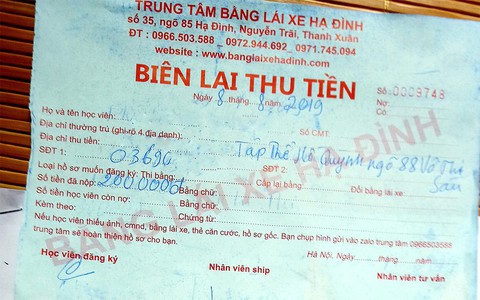 TRUNG TÂM BẰNG LÁI XE HẠ ĐÌNH
số 35, ngõ 85 Hạ Đình, Nguyễn Trãi, Thanh Xuân
ĐT : 0966.503.588 - 0972.944.692 - 0971.745.094
website : www.banglaixehadinh.com
BIÊN LAI THU TIỀN
Số: 0009748
Ngày 8 tháng 8 2019
Nợ:
Có:
Họ và tên học viên:
Địa chỉ thường trú (ghi rõ 4 địa danh): Số CMT:
Địa chỉ thu tiền: Tập Thể Quỳnh ngõ 88 Võ Thị Sáu
SĐT 1: 03696 SĐT 2:
Loại hồ sơ muốn đăng ký: Thi bằng: Cấp lại bằng: Đổi bằng lái xe:
Số tiền đã nộp: 200.000đ Bằng chữ:
Số tiền học viên còn nợ: Bằng chữ:
Kèm theo: Chứng từ:
Nếu học viên thiếu ảnh, cmnd, bằng lái xe, thẻ căn cước, hồ sơ gốc. Bạn chụp hình gửi vào zalo trung tâm 0966503588
trung tâm sẽ hoàn thiện hồ sơ cho bạn.
Hà Nội, Ngày tháng năm
Học viên đăng ký Nhân viên ship Nhân viên tư vấn
BẰNG LÁI XE HẠ ĐÌNH